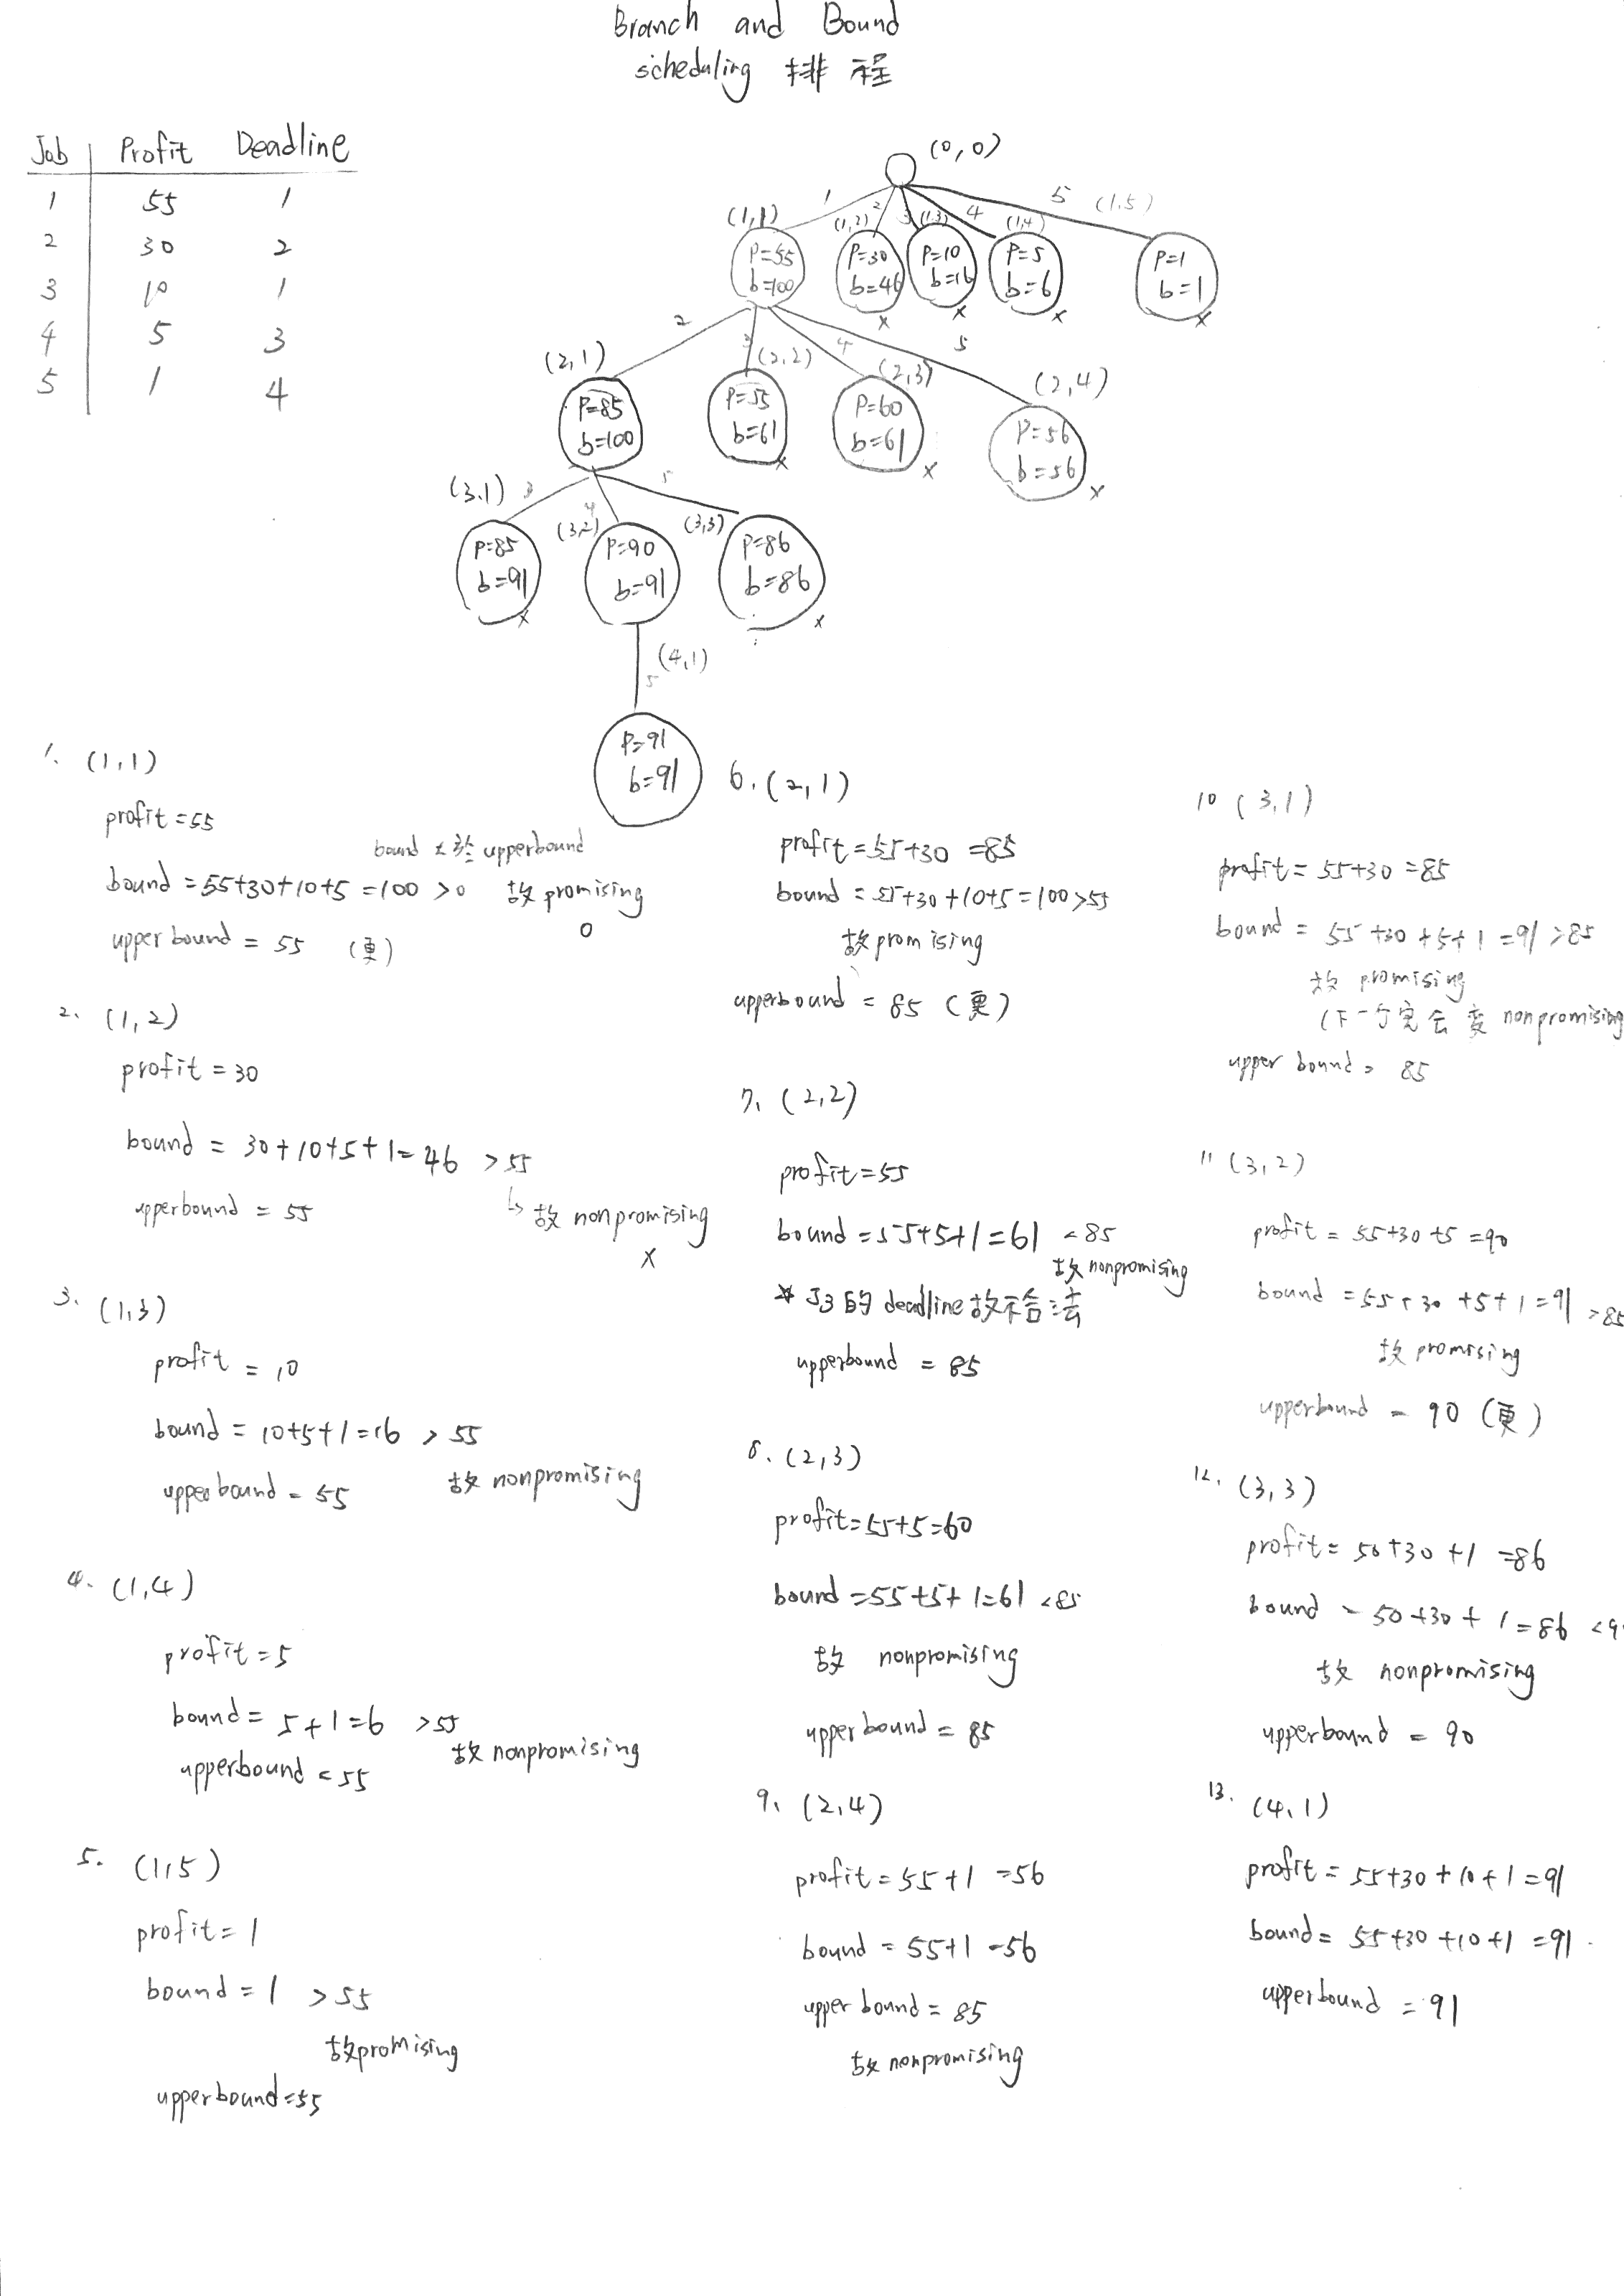 Branch and Bound
scheduling 排程
Job Profit Deadline
1 55 1
2 30 2
3 10 1
4 5 3
5 1 4
(0,0)
1 2 3 4 5
(1,1) (1,2) (1,3) (1,4) (1.5)
P=55 b=100
P=30 b=46 x
P=10 b=16 x
P=5 b=6 x
P=1 b=1 x
2 3 4 5
(2,1) (2,2) (2,3) (2,4)
P=85 b=100
P=55 b=61 x
P=60 b=61 x
P=56 b=56 x
3 4 5
(3.1) (3,2) (3,3)
P=85 b=91 x
P=90 b=91
P=86 b=86 x
(4,1)
5
P=91 b=91
1. (1,1)
profit=55
bound 大於 upperbound
bound=55+30+10+5=100>0 故 promising
O
upper bound = 55 (更)
2. (1,2)
profit=30
bound = 30+10+5+1=46 >55
upperbound = 55 ↳ 故 nonpromising
X
3. (1,3)
profit = 10
bound = 10+5+1=16 > 55
upperbound = 55 故 nonpromising
4. (1,4)
profit=5
bound= 5+1=6 >55
故 nonpromising
upperbound = 55
5. (1,5)
profit=1
bound=1 >55
故promising
upperbound=55
6. (2,1)
profit=55+30=85
bound=55+30+10+5=100>55
故promising
upperbound = 85 (更)
7. (2,2)
profit=55
bound=55+5+1=61 <85
故 nonpromising
* J3的 deadline故不合法
upperbound = 85
8. (2,3)
profit=55+5=60
bound=55+5+1=61 <85
故 nonpromising
upperbound = 85
9. (2,4)
profit=55+1=56
bound=55+1=56
upper bound=85
故 nonpromising
10 (3,1)
profit=55+30=85
bound= 55+30+5+1=91>85
故 promising
(下一行完会変 nonpromising
upper bound= 85
11 (3,2)
profit = 55+30+5=90
bound=55+30+5+1=91 >85
故 promising
upperbound = 90 (更)
12. (3,3)
profit= 50+30+1=86
bound = 50+30+1=86 <9
故 nonpromising
upperbound = 90
13. (4,1)
profit= 55+30+10+1=91
bound= 55+30+10+1=91
upperbound = 91